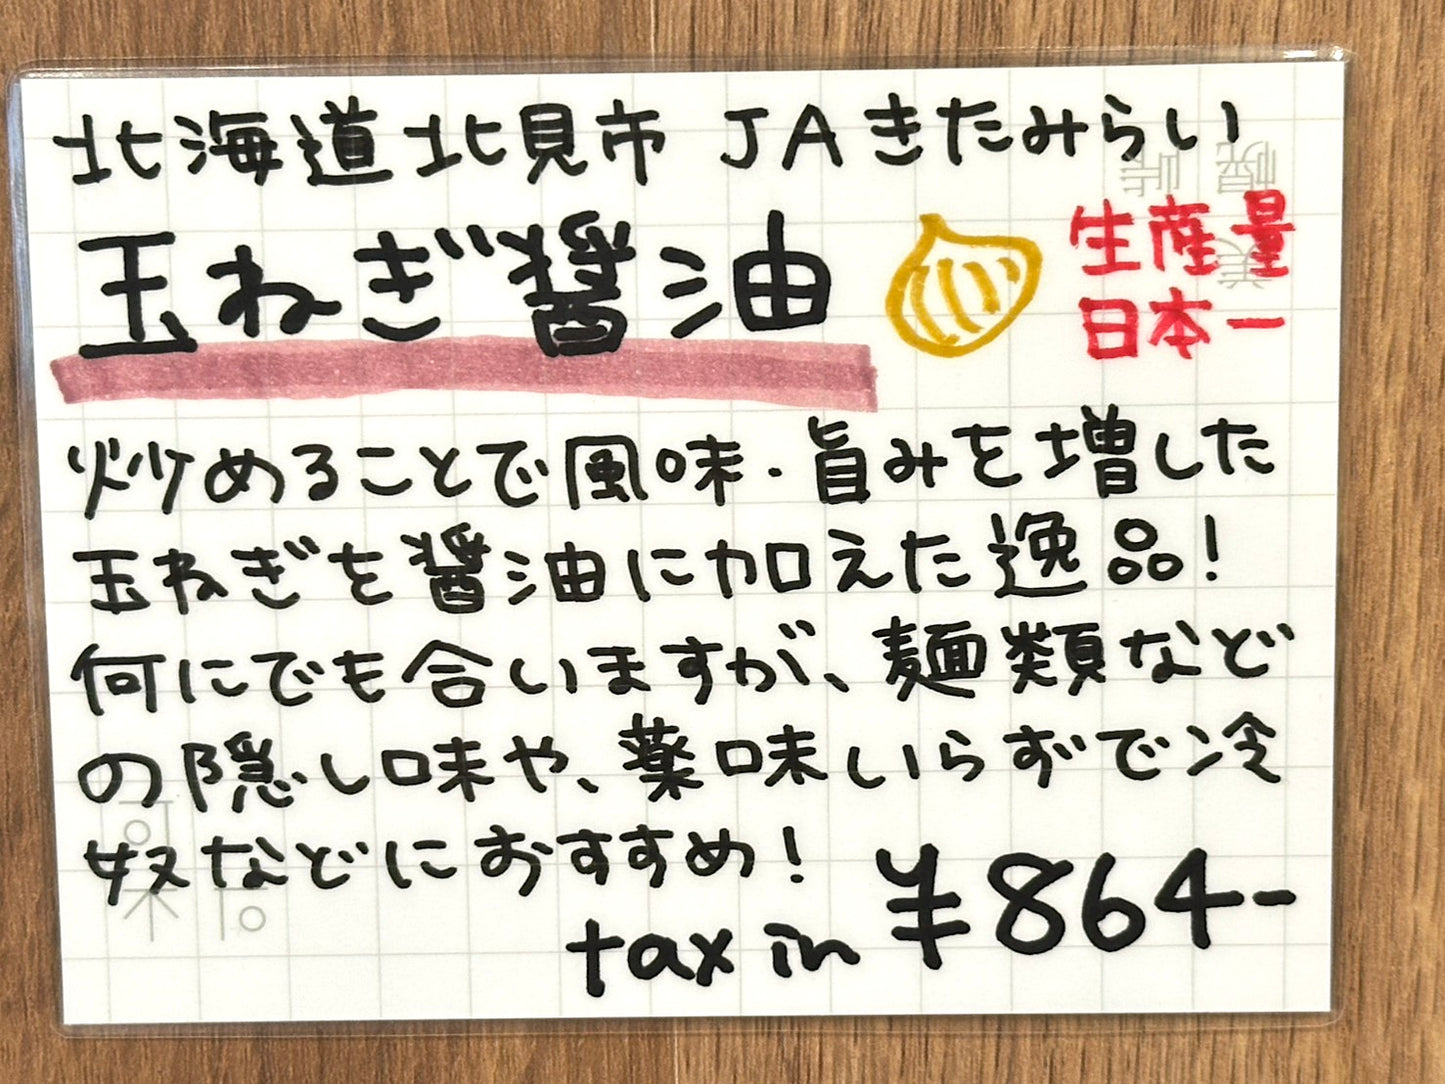 北海道北見市 JAきたみらい
玉ねぎ醤油
生産量
日本一
炒めることで風味・旨みを増した
玉ねぎを醤油に加えた逸品!
何にでも合いますが、麺類など
の隠し味や、薬味いらずで冷
奴などにおすすめ!
tax in ¥864-